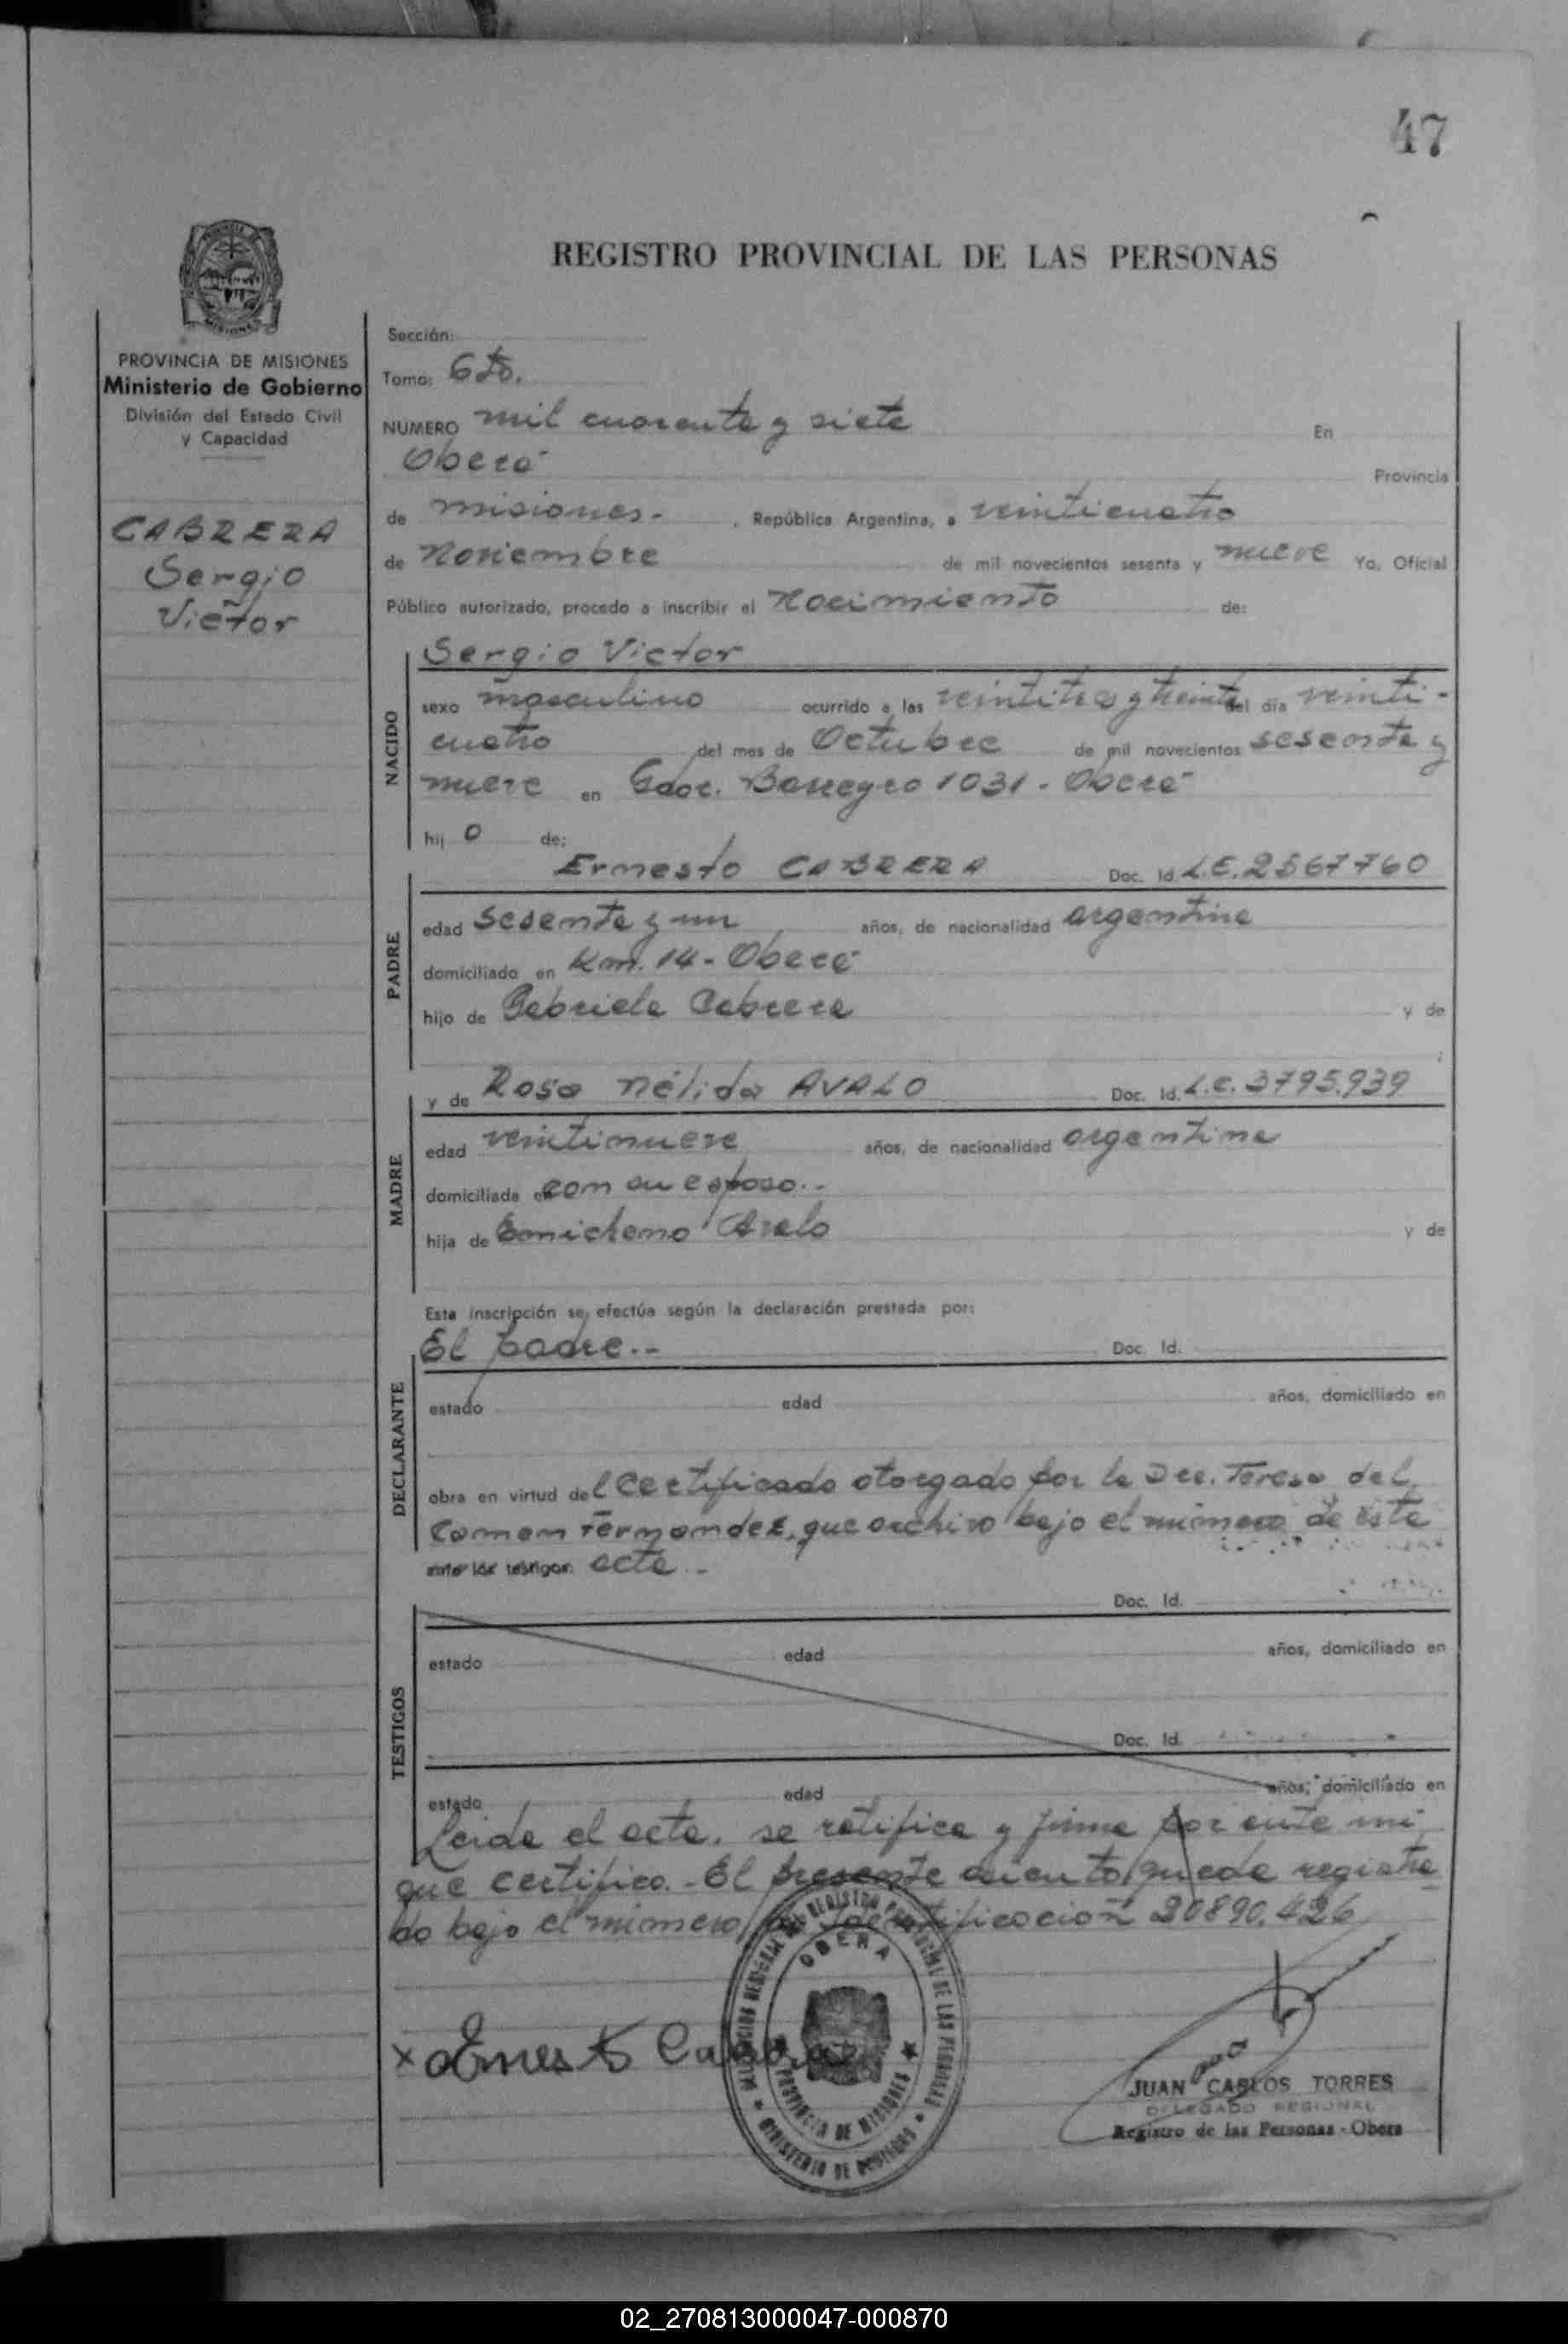 47
REGISTRO PROVINCIAL DE LAS PERSONAS
PROVINCIA DE MISIONES
Ministerio de Gobierno
División del Estado Civil
y Capacidad
CABRERA
Sergio
Victor
Sección:
Tomo: 6to.
NUMERO mil cuarenta y siete En
Oberá Provincia
de misiones.- , República Argentina, a veinticuatro
de Noviembre de mil novecientos sesenta y nueve Yo, Oficial
Público autorizado, procedo a inscribir el Nacimiento de:
NACIDO
Sergio Victor
sexo masculino ocurrido a las veintitres y treinta del día veinti-
cuatro del mes de Octubre de mil novecientos sesenta y
nueve en Gdor. Barreyro 1031 - Oberá
hij o de:
PADRE
Ernesto CABRERA Doc. Id. L.E. 2567760
edad sesenta y un años, de nacionalidad argentina
domiciliado en Km. 14 - Oberá
hijo de Gabriela Cabrera y de
MADRE
y de Rosa Nélida AVALO Doc. Id. L.C. 3795.939
edad veintinueve años, de nacionalidad argentina
domiciliada en con su esposo.-
hija de Avalo y de
Esta inscripción se efectúa según la declaración prestada por:
DECLARANTE
El padre.-- Doc. Id.
estado edad años, domiciliado en
obra en virtud del certificado otorgado por la Dra. Teresa del
Carmen Fernandez, que archivo bajo el número de esta
ante los testigos: acta.-
Doc. Id.
TESTIGOS
estado edad años, domiciliado en
Doc. Id.
estado edad años, domiciliado en
Leida el acta, se ratifica y firma por ante mi
que certifico.- El presente asiento queda registra
do bajo el número de identificación 20890.426
x Ernesto Cabrera
REGISTRO PROVINCIAL DE LAS PERSONAS
OBERA
PROVINCIA DE MISIONES
MINISTERIO DE GOBIERNO
JUAN CARLOS TORRES
DELEGADO REGIONAL
Registro de las Personas - Obera
02_270813000047-000870